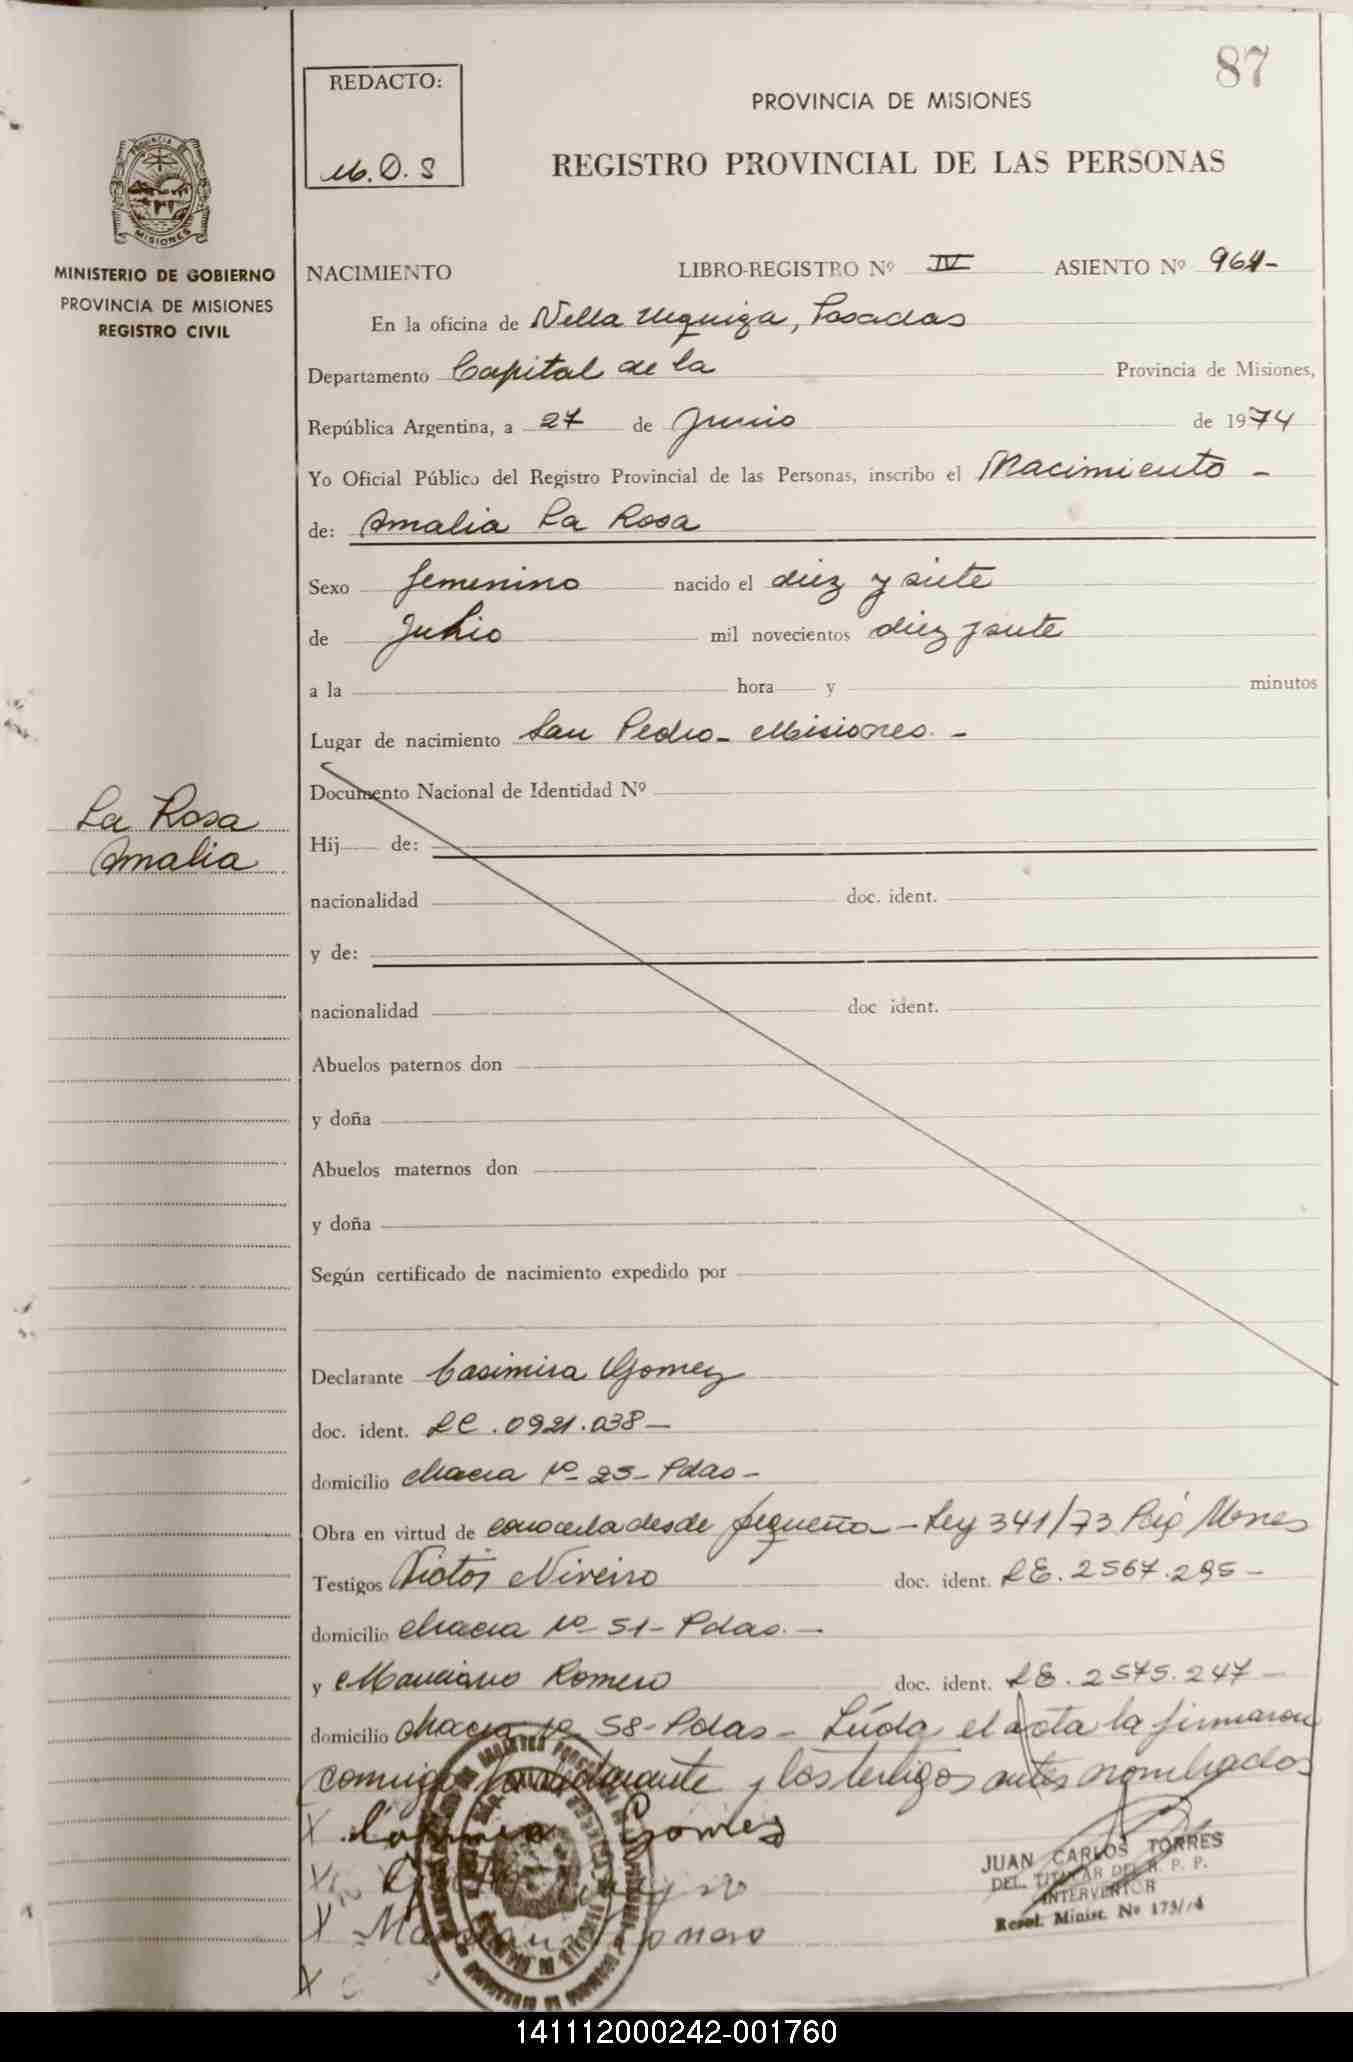 87
REDACTO:
M.O.S
PROVINCIA DE MISIONES
REGISTRO PROVINCIAL DE LAS PERSONAS
MINISTERIO DE GOBIERNO
PROVINCIA DE MISIONES
REGISTRO CIVIL
NACIMIENTO LIBRO-REGISTRO Nº IV ASIENTO Nº 964-
En la oficina de Villa Urquiza, Posadas
Departamento Capital de la Provincia de Misiones,
República Argentina, a 27 de Junio de 1974
Yo Oficial Público del Registro Provincial de las Personas, inscribo el Nacimiento -
de: Amalia La Rosa
Sexo femenino nacido el diez y siete
de Julio mil novecientos diez y siete
a la hora y minutos
Lugar de nacimiento San Pedro - Misiones. -
La Rosa
Amalia
Documento Nacional de Identidad Nº
Hij de:
nacionalidad doc. ident.
y de:
nacionalidad doc ident.
Abuelos paternos don
y doña
Abuelos maternos don
y doña
Según certificado de nacimiento expedido por
Declarante Casimira Gomez
doc. ident. LC. 0921.038-
domicilio Chacra Nº 25- Pdas-
Obra en virtud de conocerla desde pequeña - Ley 341/73
Testigos Victor Niveiro doc. ident. LE. 2567.295-
domicilio Chacra Nº 51- Pdas. -
y Marciano Romero doc. ident. LE. 2575.247-
domicilio Chacra Nº 58- Pdas- Leída el acta la firmaron
conmigo la declarante y los testigos antes nombrados
X Gomez
X
X Romero
X
JUAN CARLOS TORRES
DEL. TITULAR DEL R. P. P.
INTERVENTOR
Resol. Minist. Nº 173/74
141112000242-001760